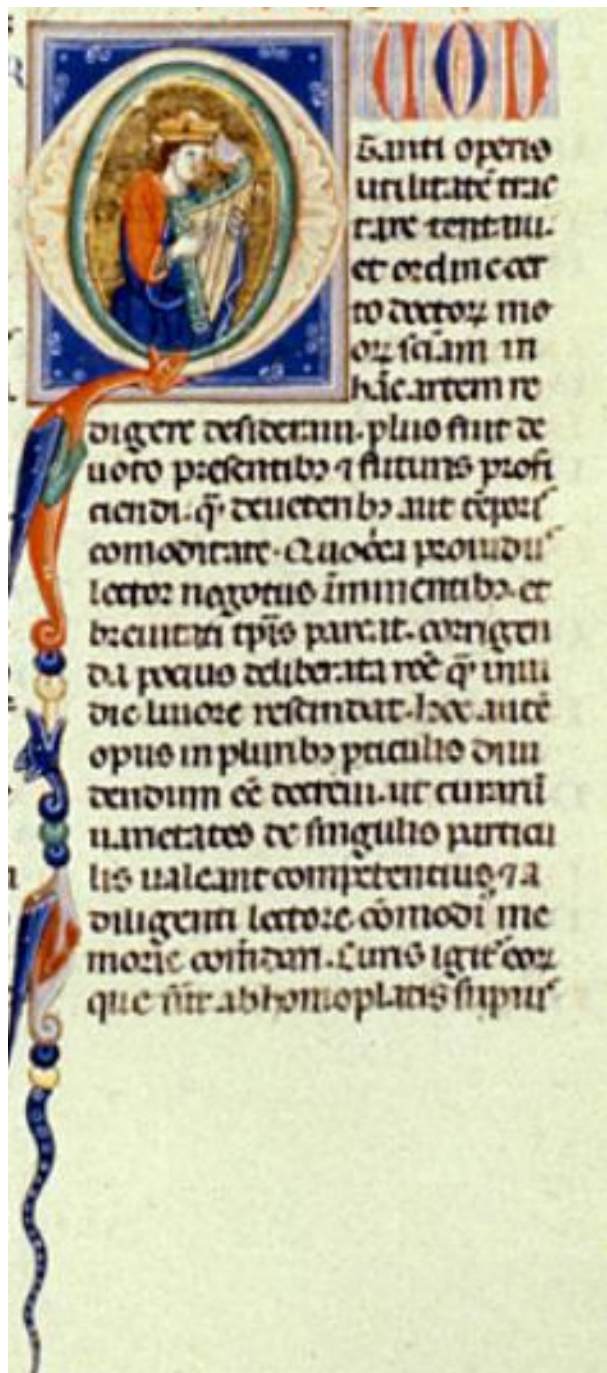 QUOD
tanti operis
utilitatē trac
tare tentaui.
et ordine cer
to doctoꝝ me
oꝝ sciām in
hāc artem re
digere desideraui. plus fuit de
uoto presentibꝫ ⁊ futuris profi
ciendi. q̄ de ueteribꝫ aut tēporꝭ
comoditate. Quocc̄a prouidꝰ
lector negotiis īminentibꝫ. et
breuitati tp̄is parcat. corrigen
da pocius deliberata rōe q̄ inui
die liuore rescindat. hoc autē
opus in pluribꝫ pticulis diui
dendum eē decreui. ut
uarietates de singulis particu
lis ualeant competentius ⁊ a
diligenti lectore cōmodiꝰ me
morie com̄dari. Curis igit᷑ eoꝝ
que ab homoplatis supiꝰ